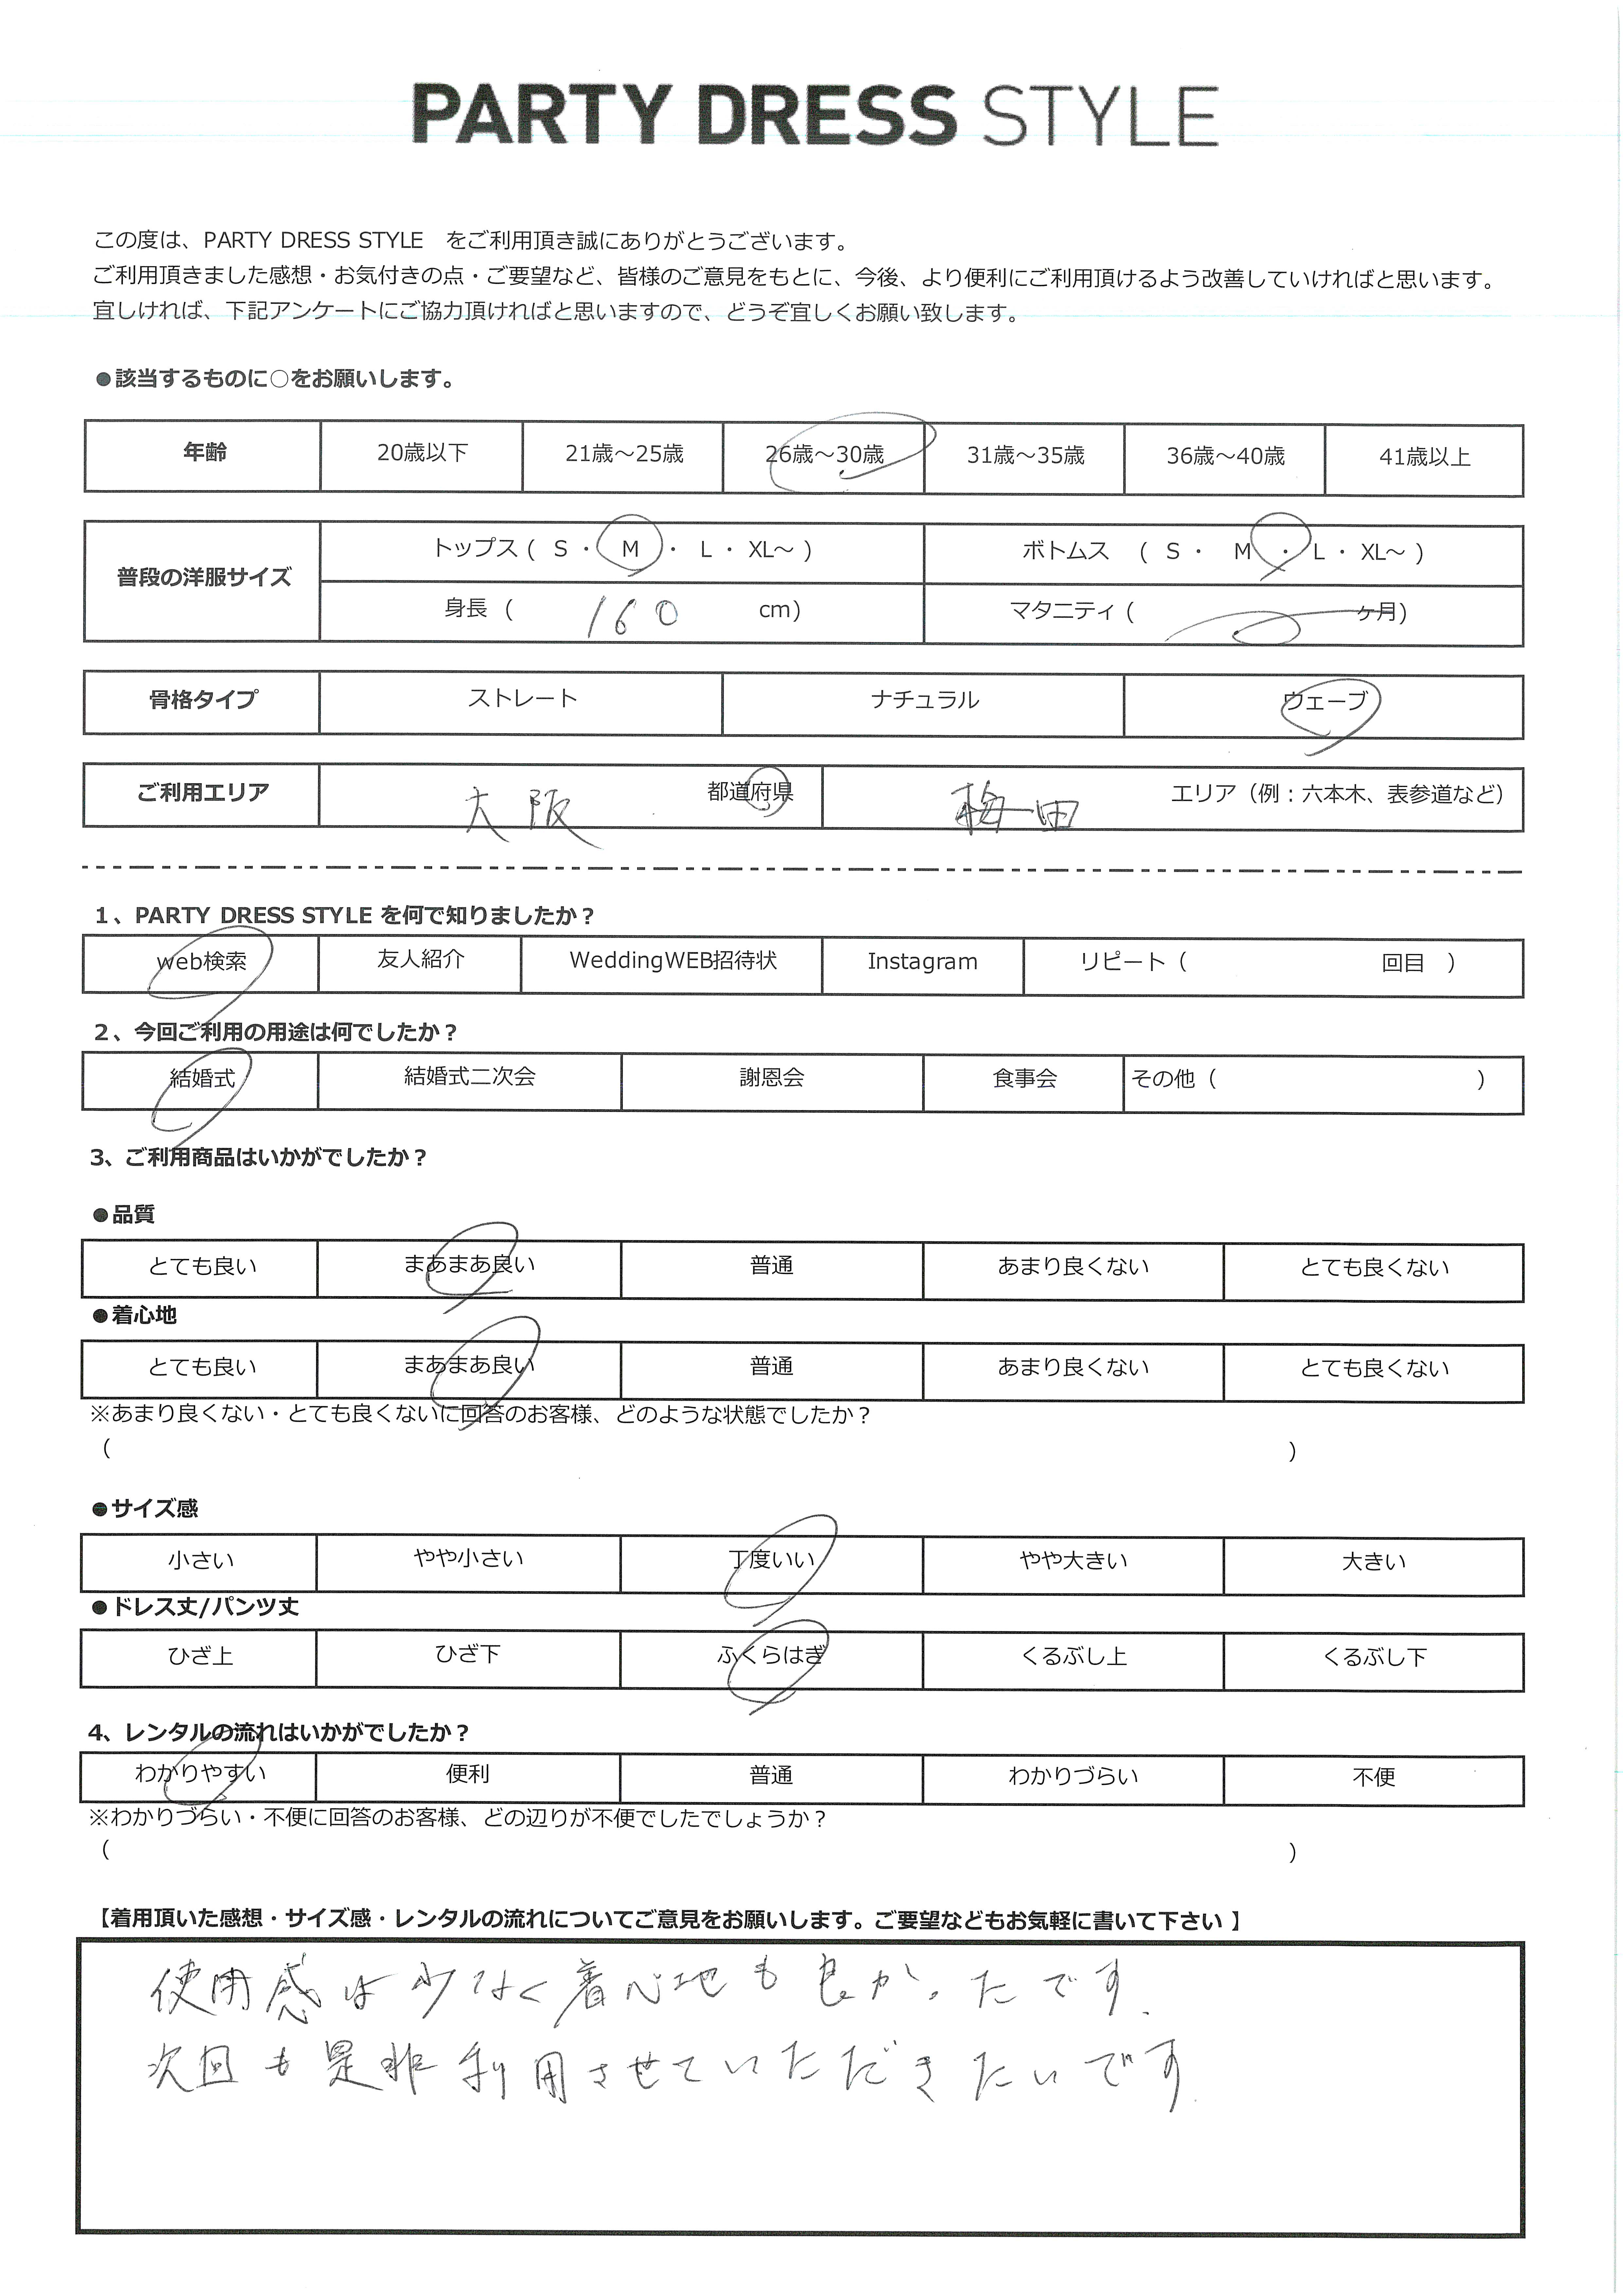 PARTY DRESS STYLE
この度は、PARTY DRESS STYLE　をご利用頂き誠にありがとうございます。
ご利用頂きました感想・お気付きの点・ご要望など、皆様のご意見をもとに、今後、より便利にご利用頂けるよう改善していければと思います。
宜しければ、下記アンケートにご協力頂ければと思いますので、どうぞ宜しくお願い致します。
●該当するものに○をお願いします。
年齢 20歳以下 21歳～25歳 26歳～30歳 31歳～35歳 36歳～40歳 41歳以上
普段の洋服サイズ トップス ( S ・ M ・ L ・ XL～ ) ボトムス ( S ・ M ・ L ・ XL～ )
身長 ( 160 cm) マタニティ ( ヶ月)
骨格タイプ ストレート ナチュラル ウェーブ
ご利用エリア 大阪 都道府県 梅田 エリア（例：六本木、表参道など）
1、PARTY DRESS STYLE を何で知りましたか？
web検索 友人紹介 WeddingWEB招待状 Instagram リピート（ 回目 ）
2、今回ご利用の用途は何でしたか？
結婚式 結婚式二次会 謝恩会 食事会 その他（ ）
3、ご利用商品はいかがでしたか？
●品質
とても良い まあまあ良い 普通 あまり良くない とても良くない
●着心地
とても良い まあまあ良い 普通 あまり良くない とても良くない
※あまり良くない・とても良くないに回答のお客様、どのような状態でしたか？
（ ）
●サイズ感
小さい やや小さい 丁度いい やや大きい 大きい
●ドレス丈/パンツ丈
ひざ上 ひざ下 ふくらはぎ くるぶし上 くるぶし下
4、レンタルの流れはいかがでしたか？
わかりやすい 便利 普通 わかりづらい 不便
※わかりづらい・不便に回答のお客様、どの辺りが不便でしたでしょうか？
（ ）
【着用頂いた感想・サイズ感・レンタルの流れについてご意見をお願いします。ご要望などもお気軽に書いて下さい 】
使用感は少なく着心地も良かったです.
次回も是非利用させていただきたいです.